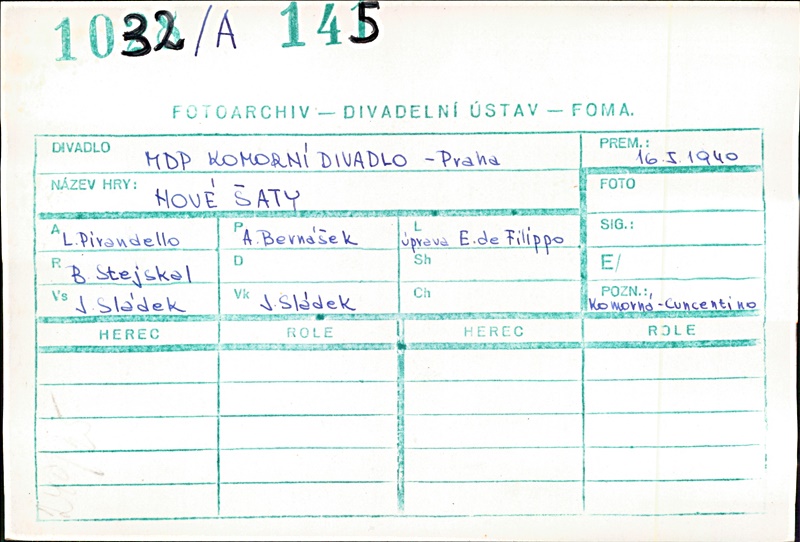 1032/A 145
FOTOARCHIV — DIVADELNÍ ÚSTAV — FOMA.
DIVADLO MDP KOMORNÍ DIVADLO - Praha
PREM.: 16.I.1940
NÁZEV HRY: NOVÉ ŠATY
FOTO
A L. Pirandello
P A. Bernášek
L úprava E. de Filippo
SIG.:
R B. Stejskal
D
Sh
E/
Vs J. Sládek
Vk J. Sládek
Ch
POZN.: Komorná - Cuncentino
HEREC ROLE HEREC ROLE